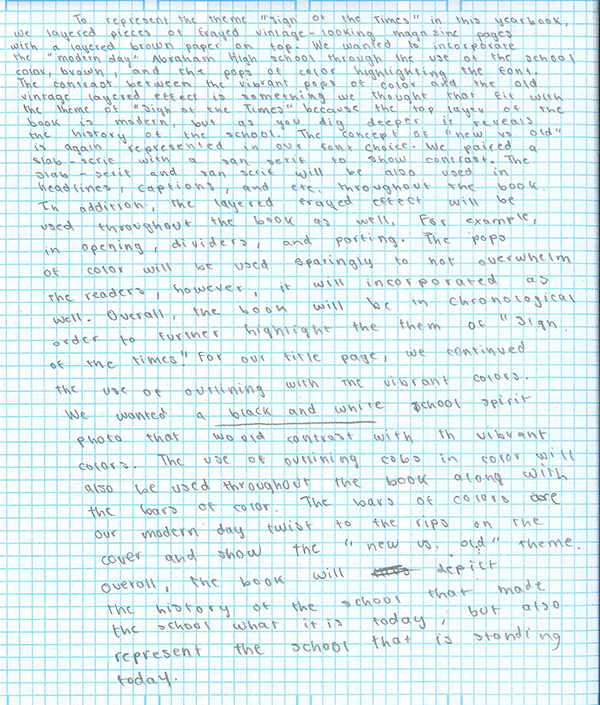 To represent the theme "Sign of the Times" in this yearbook,
we layered pieces of frayed vintage-looking magazine pages
with a layered brown paper on top. We wanted to incorporate
the "modern day" Abraham High school through the use of the school
color, brown, and the pops of color highlighting the font.
The contrast between the vibrant pops of color and the old
vintage layered effect is something we thought that fit with
the theme of "Sign of the Times" because the top layer of the
book is modern, but as you dig deeper it reveals
the history of the school. The concept of "new vs old"
is again represented in our font choice. We paired a
slab-serif with a san serif to show contrast. The
slab-serif and san serif will be also used in
headlines, captions, and etc. throughout the book.
In addition, the layered frayed effect will be
used throughout the book as well. For example,
in opening, dividers, and parting. The pops
of color will be used sparingly to not overwhelm
the readers, however, it will incorporated as
well. Overall, the book will be in chronological
order to further highlight the them of "Sign
of the times." For our title page, we continued
the use of outlining with the vibrant colors.
We wanted a black and white school spirit
photo that would contrast with th vibrant
colors. The use of outlining cobs in color will
also be used throughout the book along with
the bars of color. The bars of colors are
our modern day twist to the rips on the
cover and show the "new vs. old" theme.
Overall, the book will depict
the history of the school that made
the school what it is today, but also
represent the school that is standing
today.